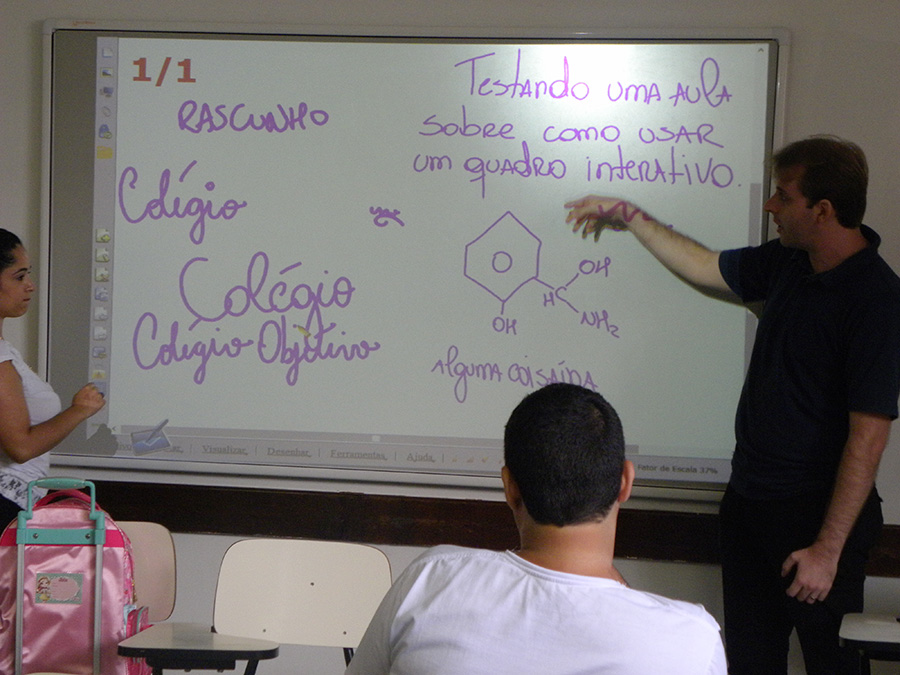 1/1
RASCUNHO
Colégio
Colégio
Colégio Objetivo
Testando uma aula
sobre como usar
um quadro interativo.
OH
H C
NH2
OH
Alguma coisaína
Visualizar
Desenhar
Ferramentas
Ajuda
Fator de Escala 37%